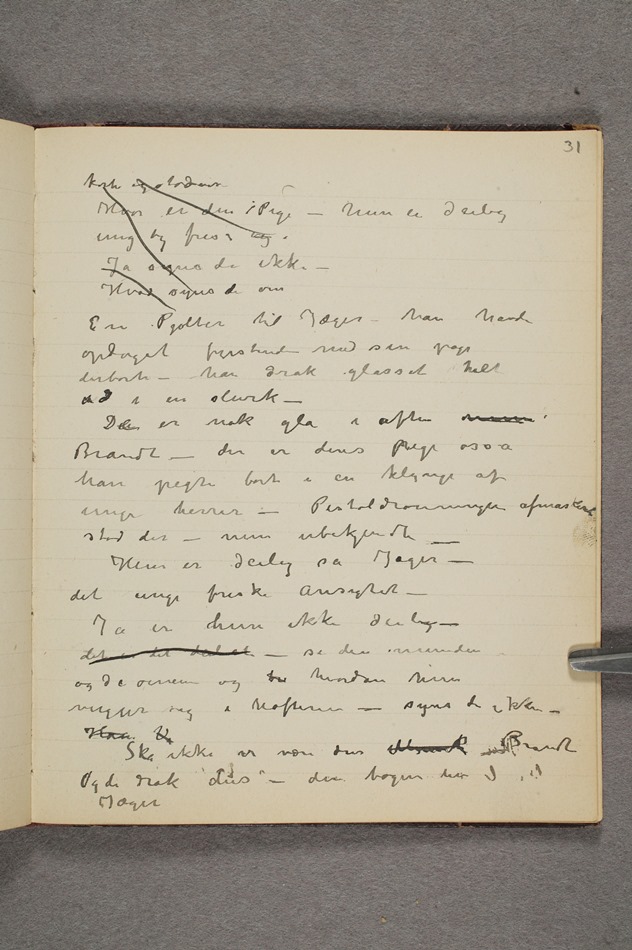 31
korte og
Hvor er den Pige – hun er deilig
ung og frisk og.
Ja synes de ikke –
Hvad synes de om
En Pjolter til Jæger – han havde
opdaget fyrstinden med sin page
derborte – han drak glasset helt
ud i en slurk –
De er nok gla i aften
Brandt – der er deres Pige ossa
han pegte bort i en klynge af
unge herrer – Pistoldronningen afmaskeret
stod der – min ubekjendte –
Hun er deilig sa Jæger –
det unge friske ansigtet –
Ja er hun ikke deilig –
det er det – se den munden
og de øinene og hvordan hun
vugger seg i hofterne – synes de ikke –
Skal ikke vi være dus Brandt
Og de drak dus –
Jæger